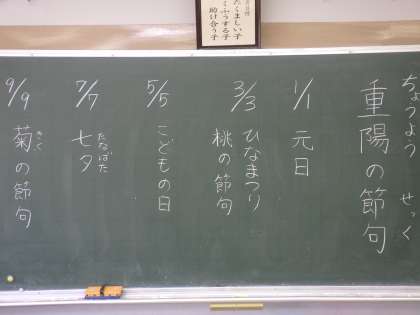 たくましい子
くふうする子
助け合う子
ちょうよう せっく
重陽の節句
1/1 元日
3/3 ひなまつり
桃の節句
5/5 こどもの日
7/7 たなばた
七夕
9/9 きく
菊の節句